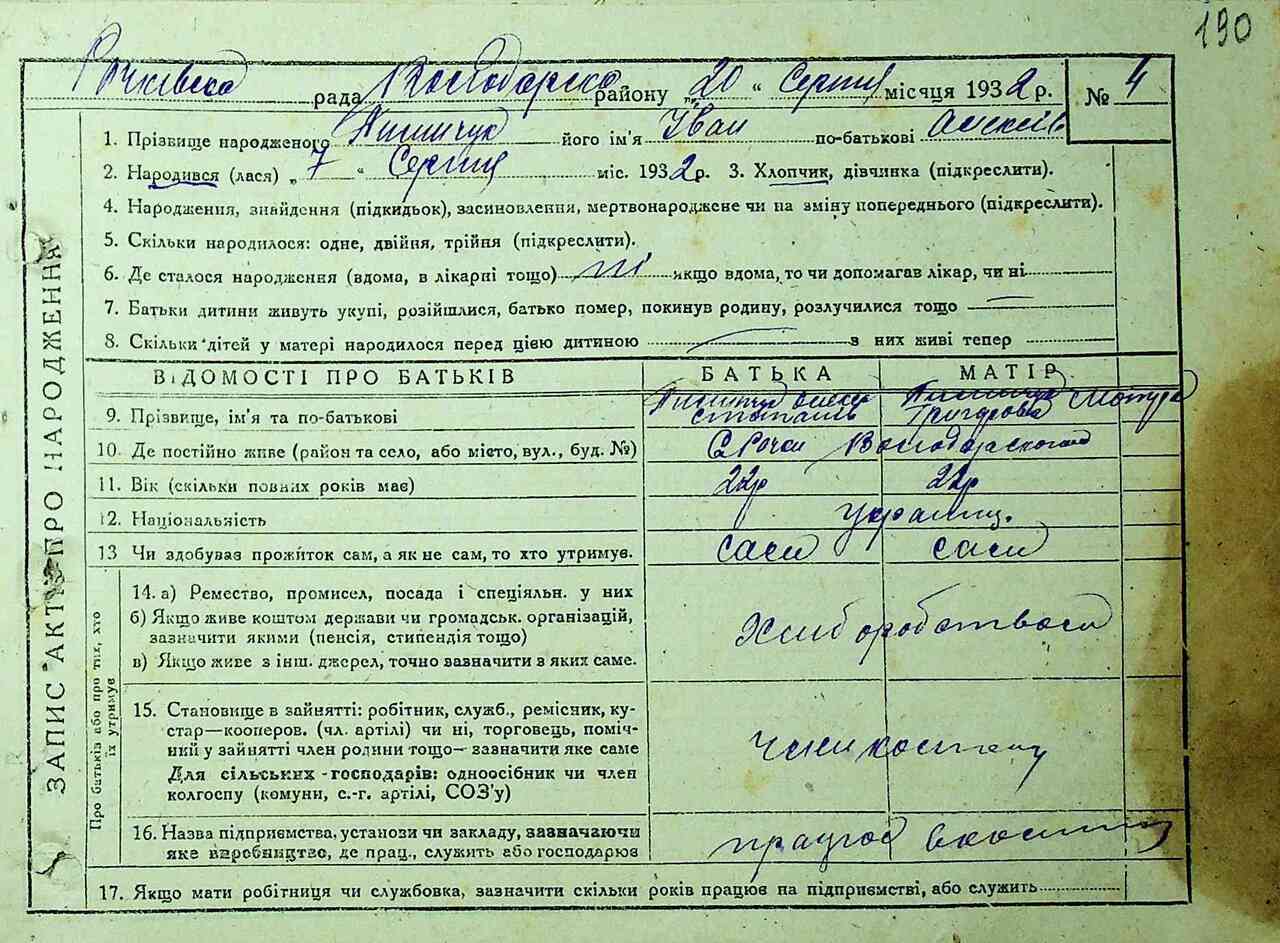 190
рада Володарско району „20“ Серпня місяця 1932 р. № 4
1. Прізвище народженого його ім'я Іван по-батькові
2. Народився (лася) „7“ Серпня міс. 1932 р. 3. Хлопчик, дівчинка (підкреслити).
4. Народження, знайдення (підкидьок), засиновлення, мертвонароджене чи на зміну попереднього (підкреслити).
5. Скільки народилося: одне, двійня, трійня (підкреслити).
6. Де сталося народження (вдома, в лікарні тощо) ні якщо вдома, то чи допомагав лікар, чи ні
7. Батьки дитини живуть укупі, розійшлися, батько помер, покинув родину, розлучилися тощо —
8. Скільки дітей у матері народилося перед цією дитиною — з них живі тепер
ВІДОМОСТІ ПРО БАТЬКІВ БАТЬКА МАТІР
9. Прізвище, ім'я та по-батькові
10. Де постійно живе (район та село, або місто, вул., буд. №)
11. Вік (скільки повних років має) 22р 22р
12. Національність
13 Чи здобував прожиток сам, а як не сам, то хто утримує. сам сам
Про батьків або про тих, хто їх утримує
14. а) Ремество, промисел, посада і спеціяльн. у них
б) Якщо живе коштом держави чи громадськ. організацій,
зазначити якими (пенсія, стипендія тощо)
в) Якщо живе з інш. джерел, точно зазначити в яких саме.
15. Становище в зайнятті: робітник, служб., ремісник, ку-
стар—кооперов. (чл. артілі) чи ні, торговець, поміч-
ний у зайнятті член родини тощо— зазначити яке саме
Для сільських-господарів: одноосібник чи член
колгоспу (комуни, с.-г. артілі, СОЗ'у)
16. Назва підприємства, установи чи закладу, зазначаючи
яке виробництво, де прац., служить або господарює
17. Якщо мати робітниця чи службовка, зазначити скільки років працює на підприємстві, або служить
ЗАПИС АКТУ ПРО НАРОДЖЕННЯ